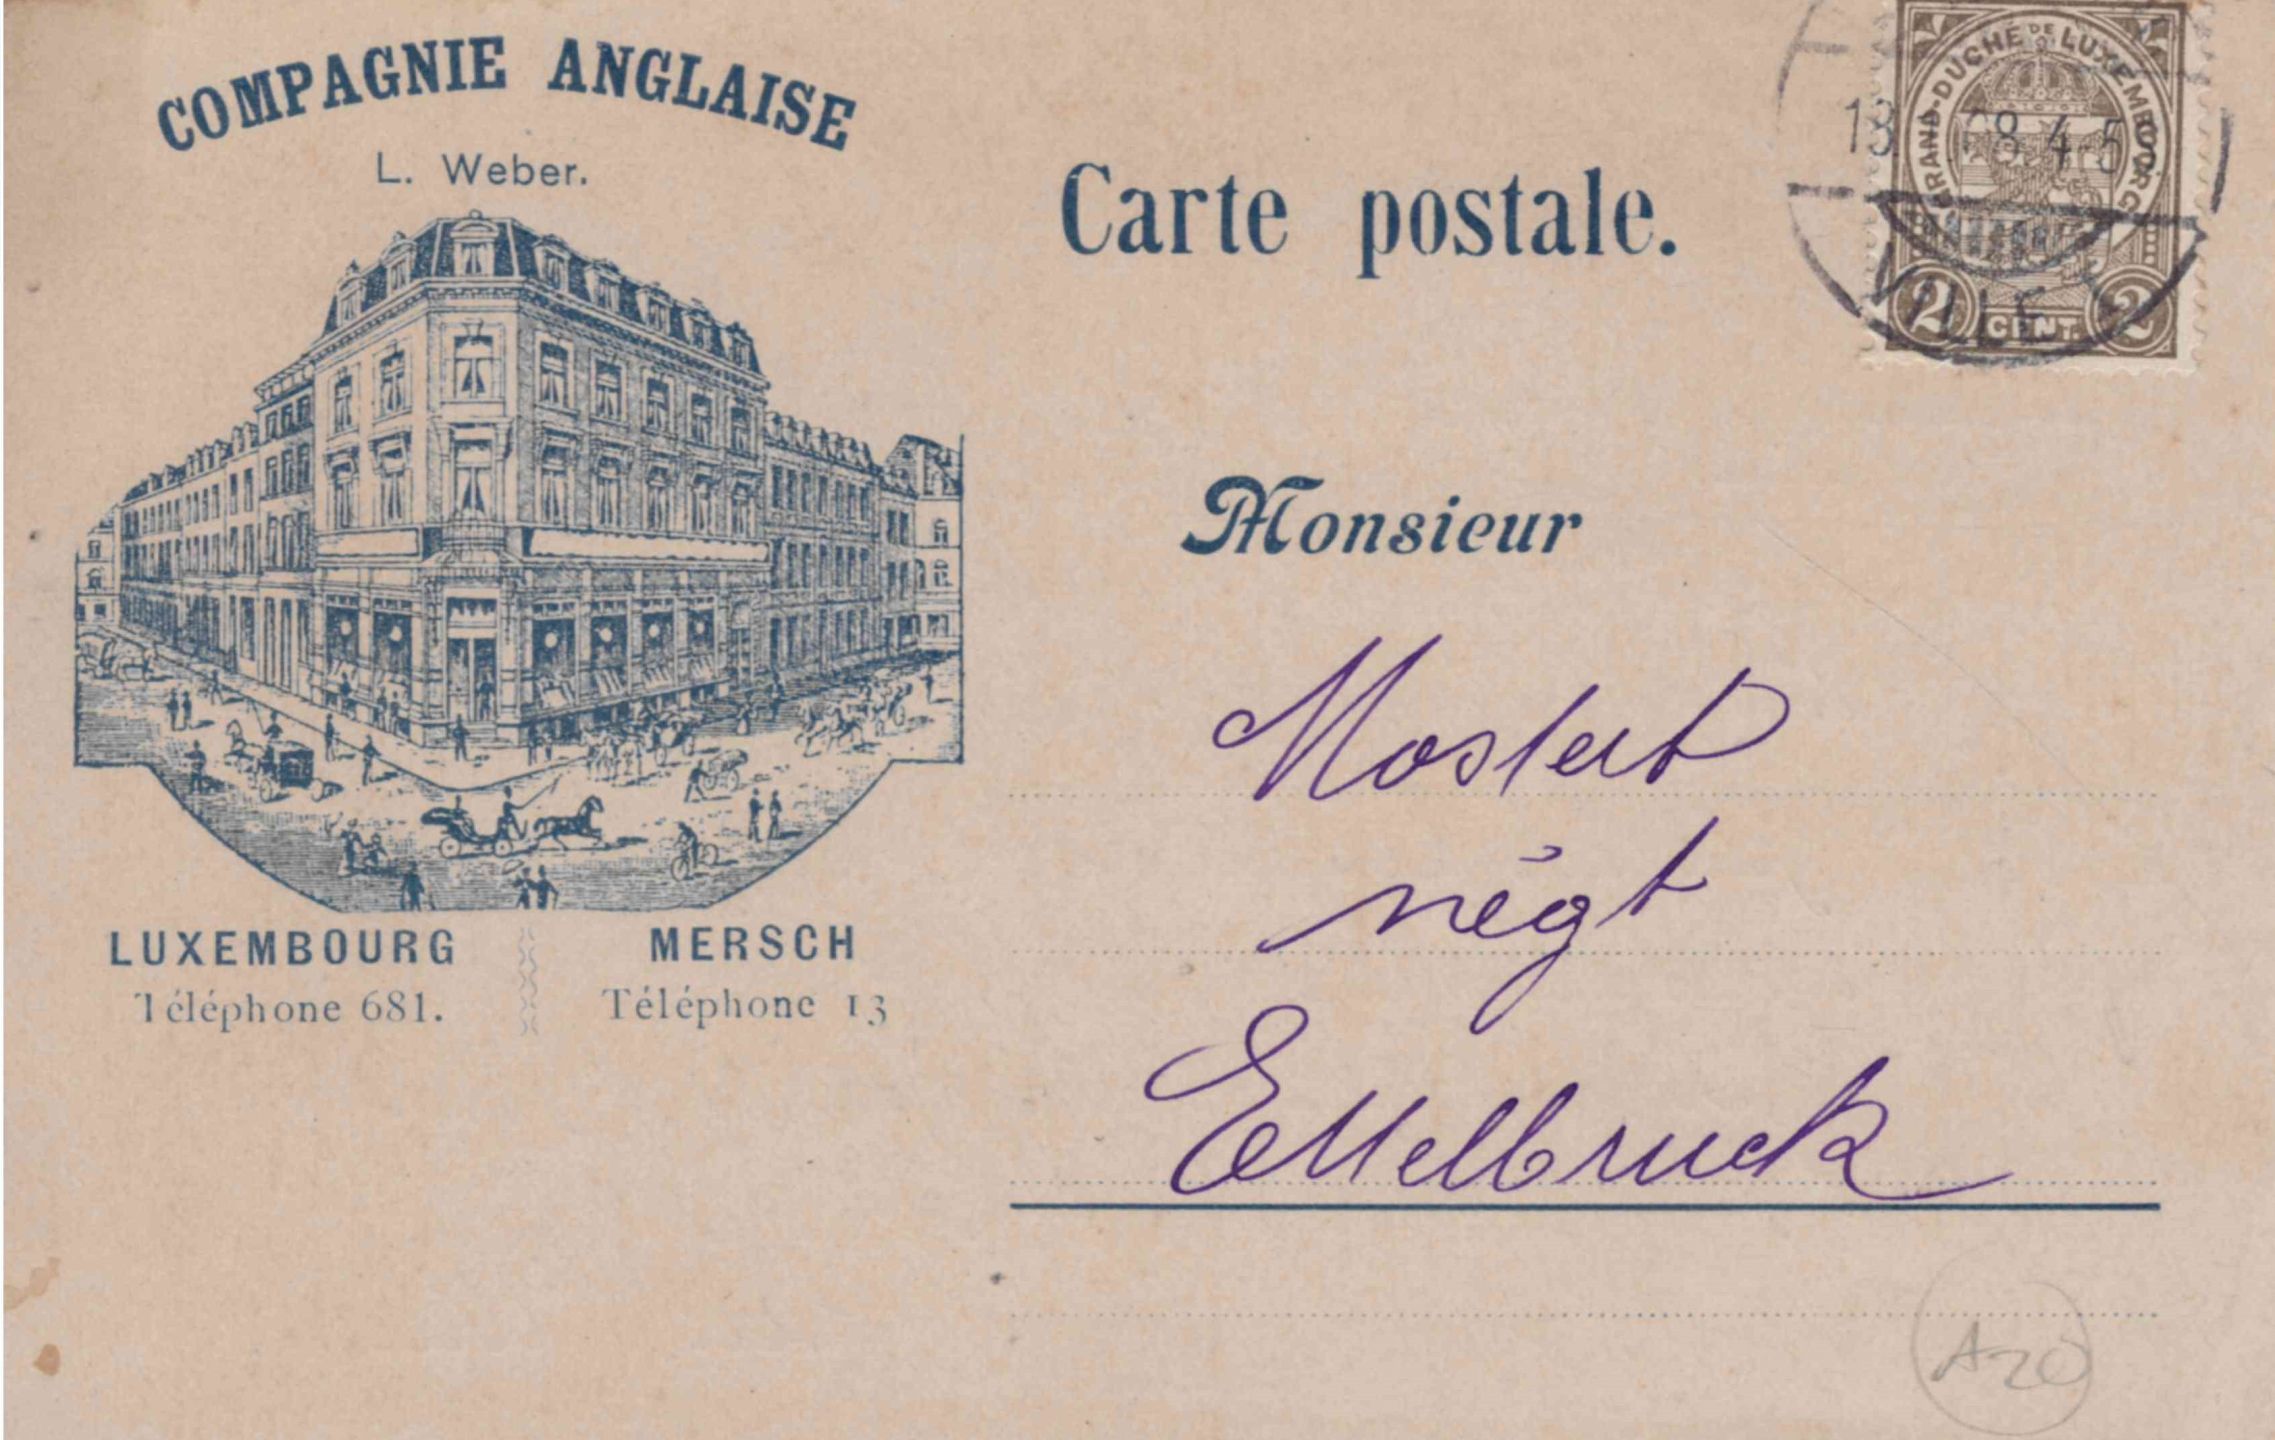 COMPAGNIE ANGLAISE
L. Weber.
Carte postale.
GRAND-DUCHÉ DE LUXEMBOURG
2 CENT. 2
VILLE
Monsieur
Mostert
négt
Ettelbruck
LUXEMBOURG
Téléphone 681.
MERSCH
Téléphone 13
A20